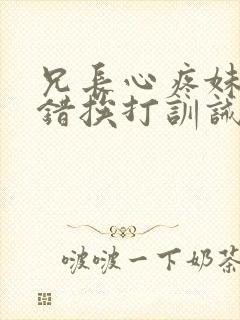 兄長心疼妹
錯挨打訓誡
啵啵一下奶茶